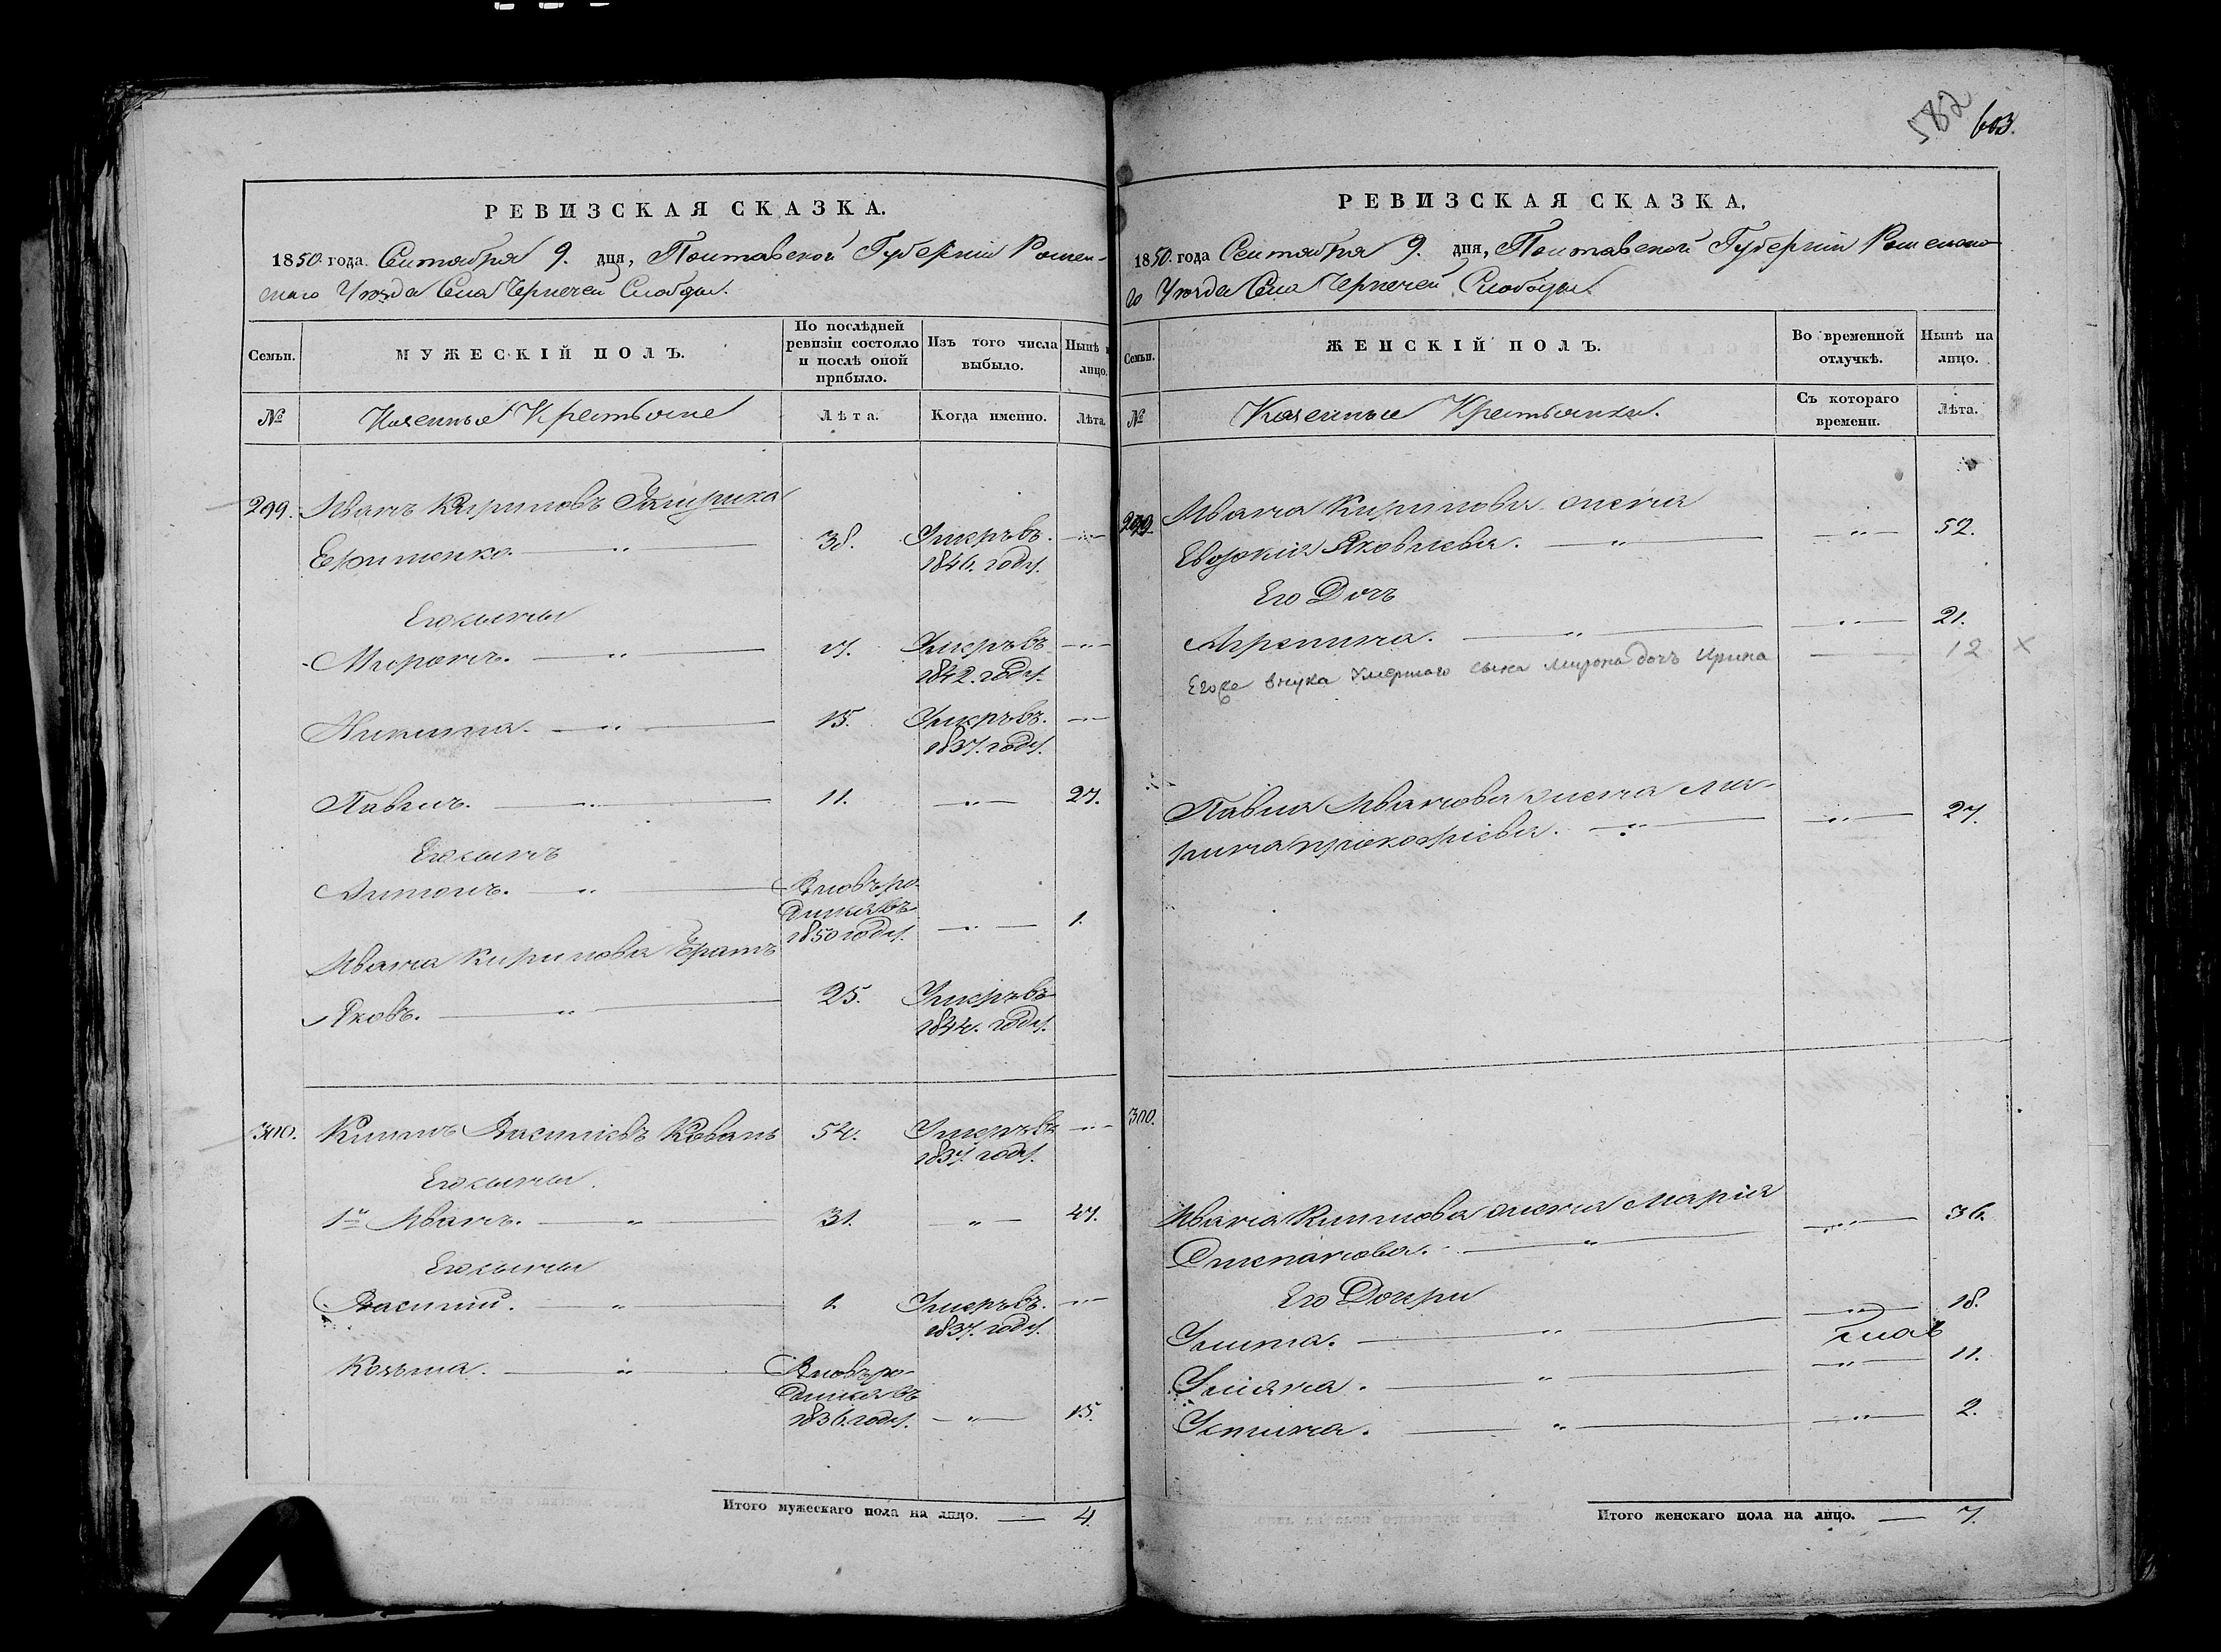 582
603.
РЕВИЗСКАЯ СКАЗКА.
1850 года Сентября 9. дня, Полтавской Губерніи Ромен-
скаго Уѣзда Села Чернечей Слободы.
Семьи.
МУЖЕСКІЙ ПОЛЪ.
По послѣдней ревизіи состояло и послѣ оной прибыло.
Изъ того числа выбыло.
Нынѣ на лицо.
№
Казенные Крестьяне
Лѣта.
Когда именно.
Лѣта.
299. Иванъ Кириловъ
Ефименко. 38. Умеръ въ 1846. году.
Его сыны
Миронъ. 17. Умеръ въ 1842. году.
Никита. 15. Умеръ въ 1837. году.
Павелъ. 11. 27.
Его сынъ
Антонъ. Вновь родился въ 1850 году. 1.
Ивана Кирилова братъ
Яковъ. 25. Умеръ въ 1844. году.
300. Василіевъ Коваль 54. Умеръ въ 1837. году.
Его сыны
1й Иванъ. 31. 47.
Его сыны
Василій. 1. Умеръ въ 1837. году.
Козьма. Вновь родился въ 1836. году. 15.
Итого мужескаго пола на лицо. 4.
РЕВИЗСКАЯ СКАЗКА.
1850 года Сентября 9. дня, Полтавской Губерніи Роменска-
го Уѣзда Села Чернечей Слободы.
Семьи.
ЖЕНСКІЙ ПОЛЪ.
Во временной отлучкѣ.
Нынѣ на лицо.
№
Казенные Крестьянки.
Съ котораго времени.
Лѣта.
299 Ивана Кирилова жена
Евдокія Яковлева. 52.
Его Дочь
Агрепина. 21.
Егоже внука умершаго сына Мирона дочь Ирина 12 х
Павла Иванова жена Ма-
рина Прокофіева. 27.
300.
Ивана жена Марія
Степанова. 36.
Его Дочери
Улита. 18.
Уліяна. 11.
Устина. 2.
Итого женскаго пола на лицо. 7.